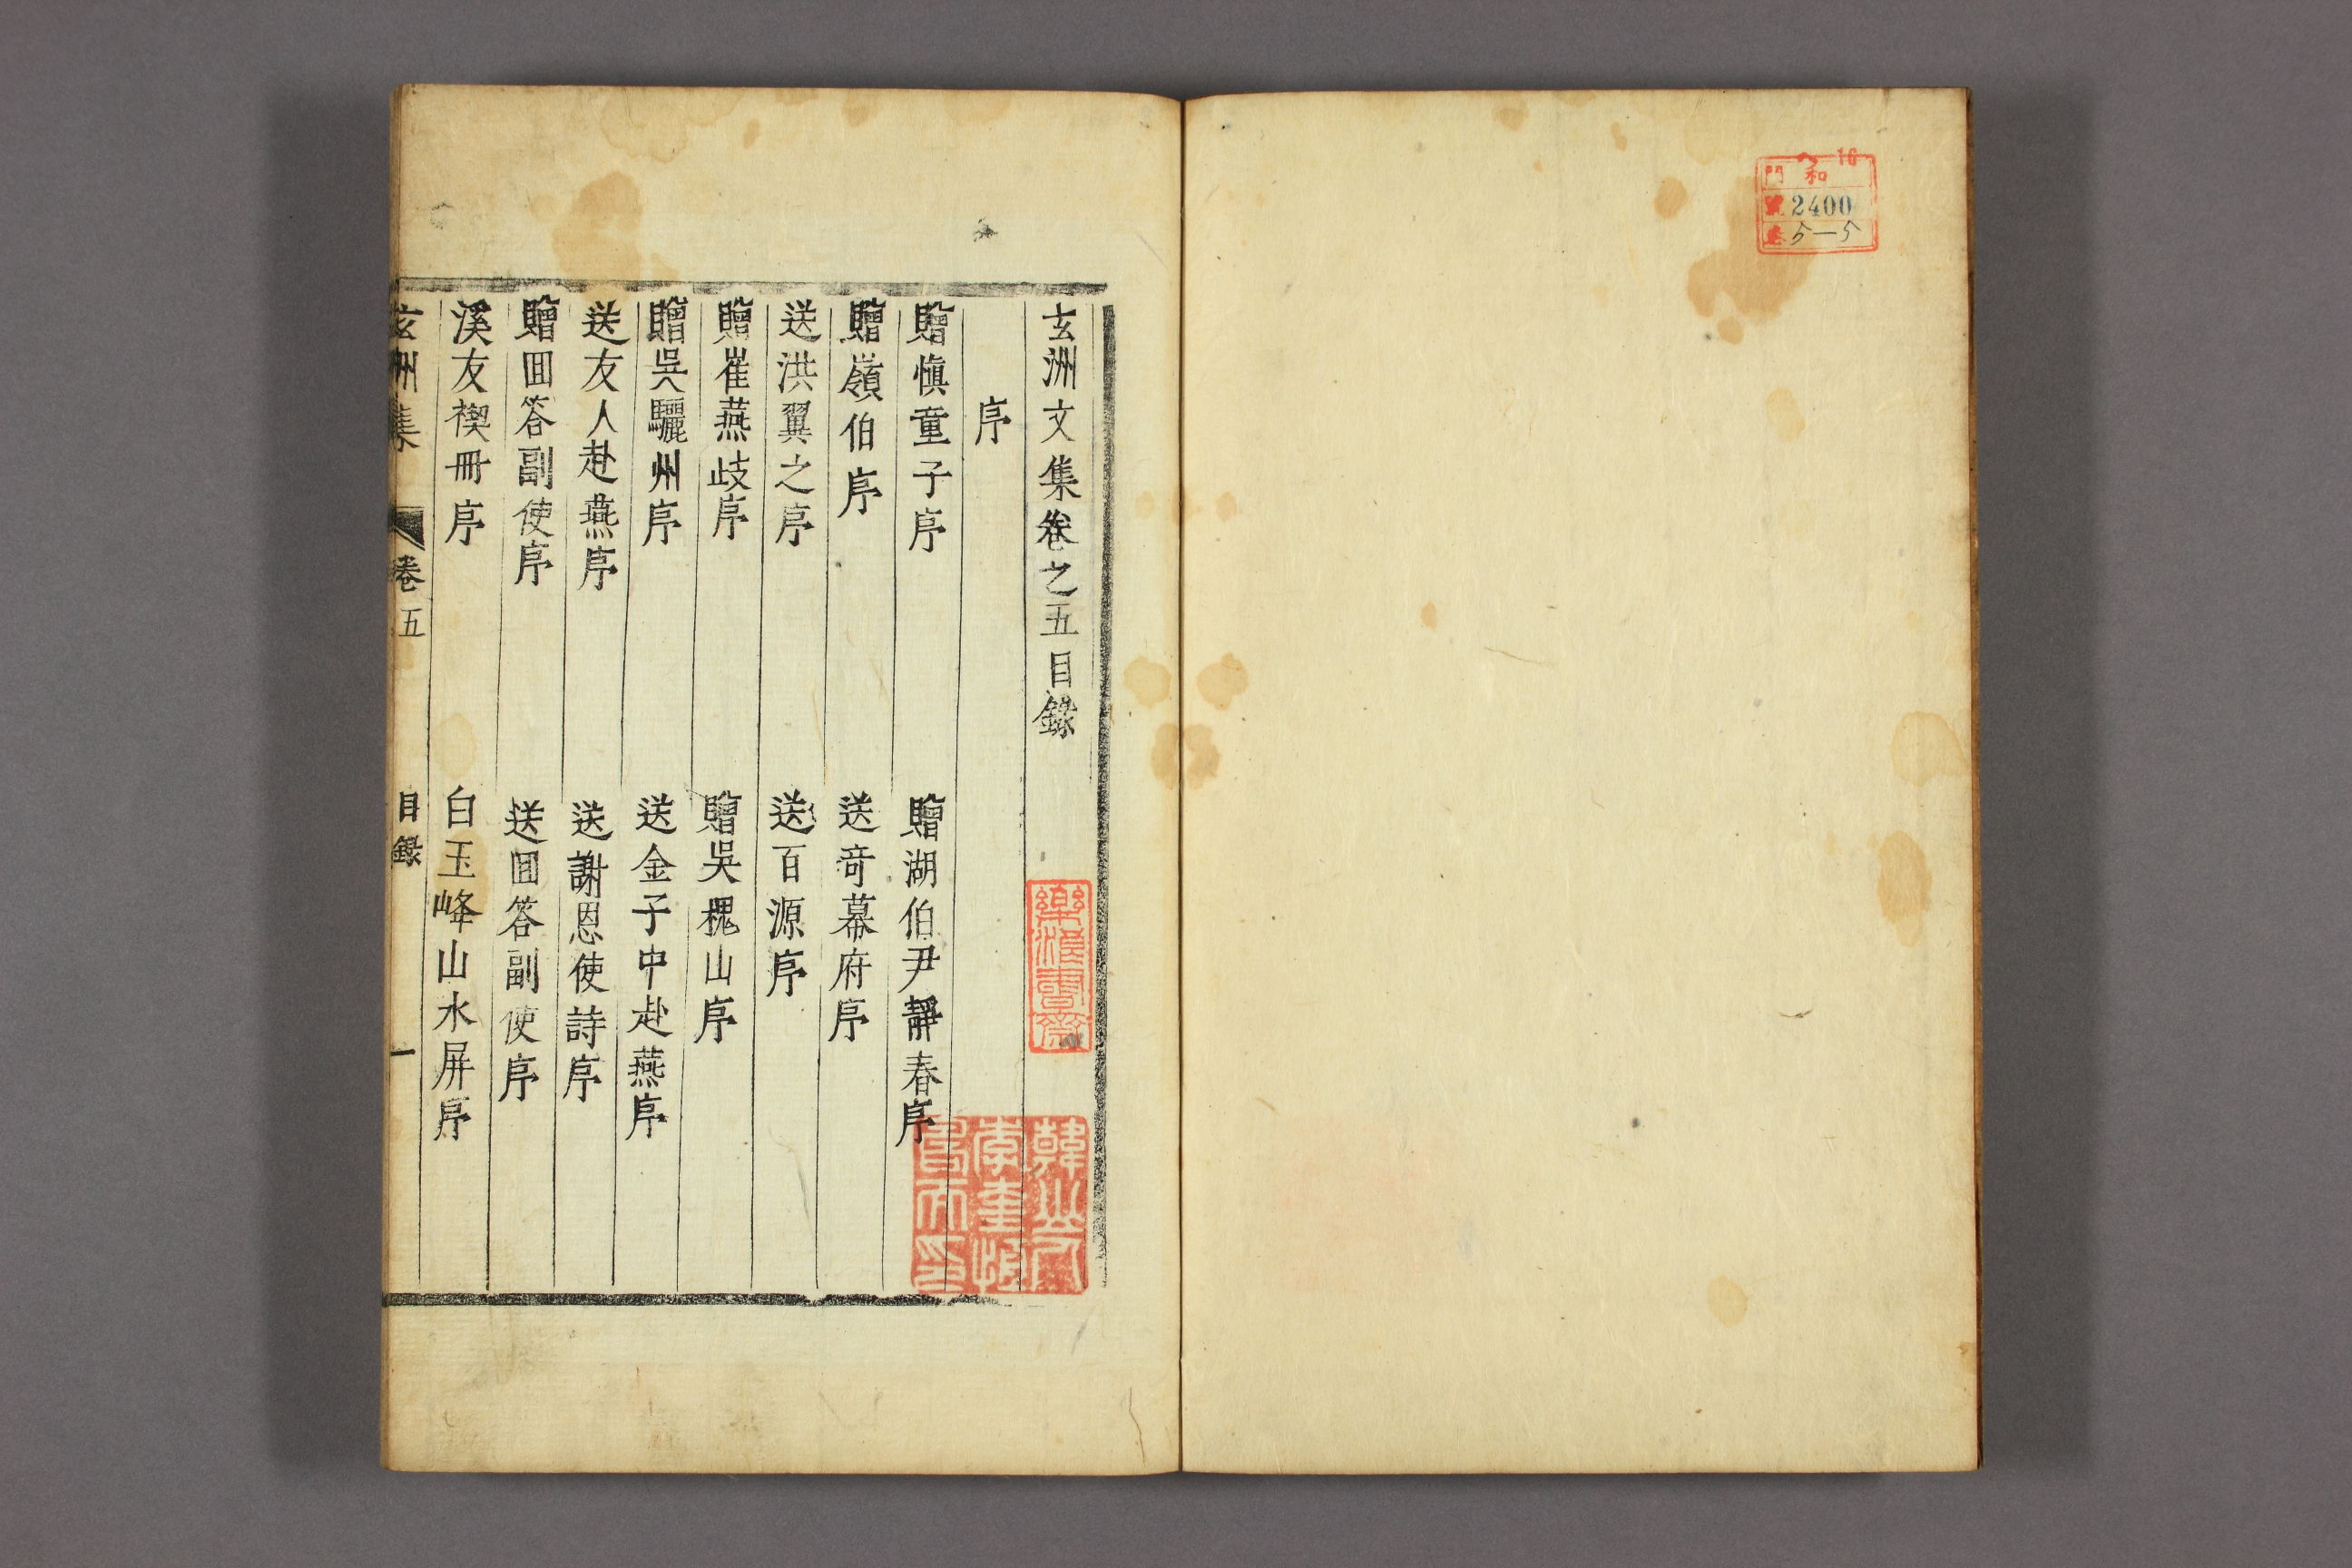 ヘ 16
門 和
號 2400
卷 5—5
玄洲文集卷之五目錄
序
贈愼童子序 贈湖伯尹靜春序
贈嶺伯序 送竒幕府序
送洪翼之序 送百源序
贈崔燕歧序 贈吳槐山序
贈吳驪州序 送金子中赴燕序
送友人赴燕序 送謝恩使詩序
贈囬答副使序 送囬答副使序
溪友禊冊序 白玉峰山水屏序
玄洲集 卷五 目錄 一